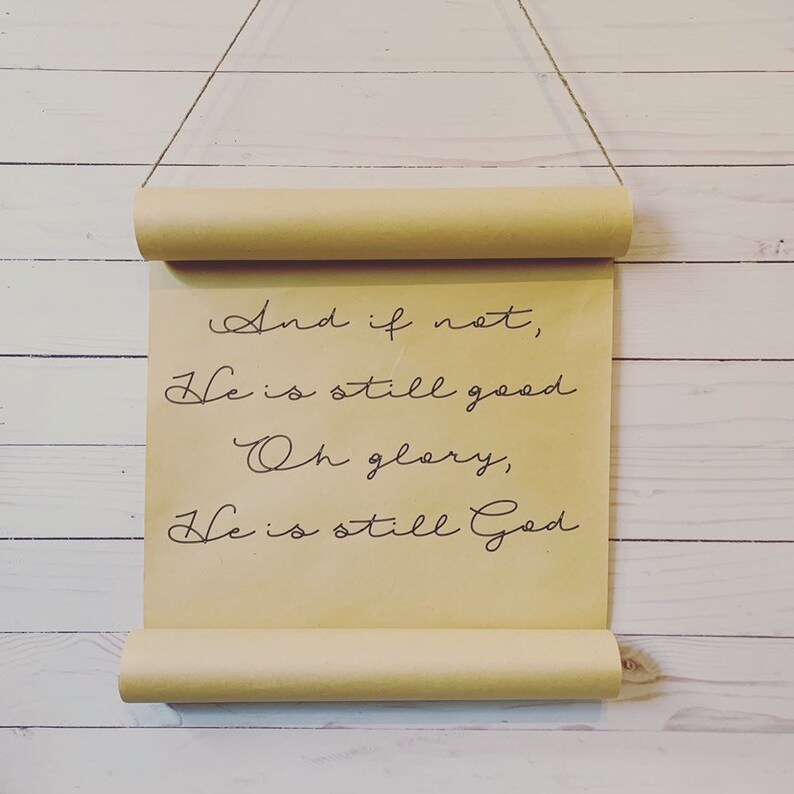 And if not,
He is still good
Oh glory,
He is still God